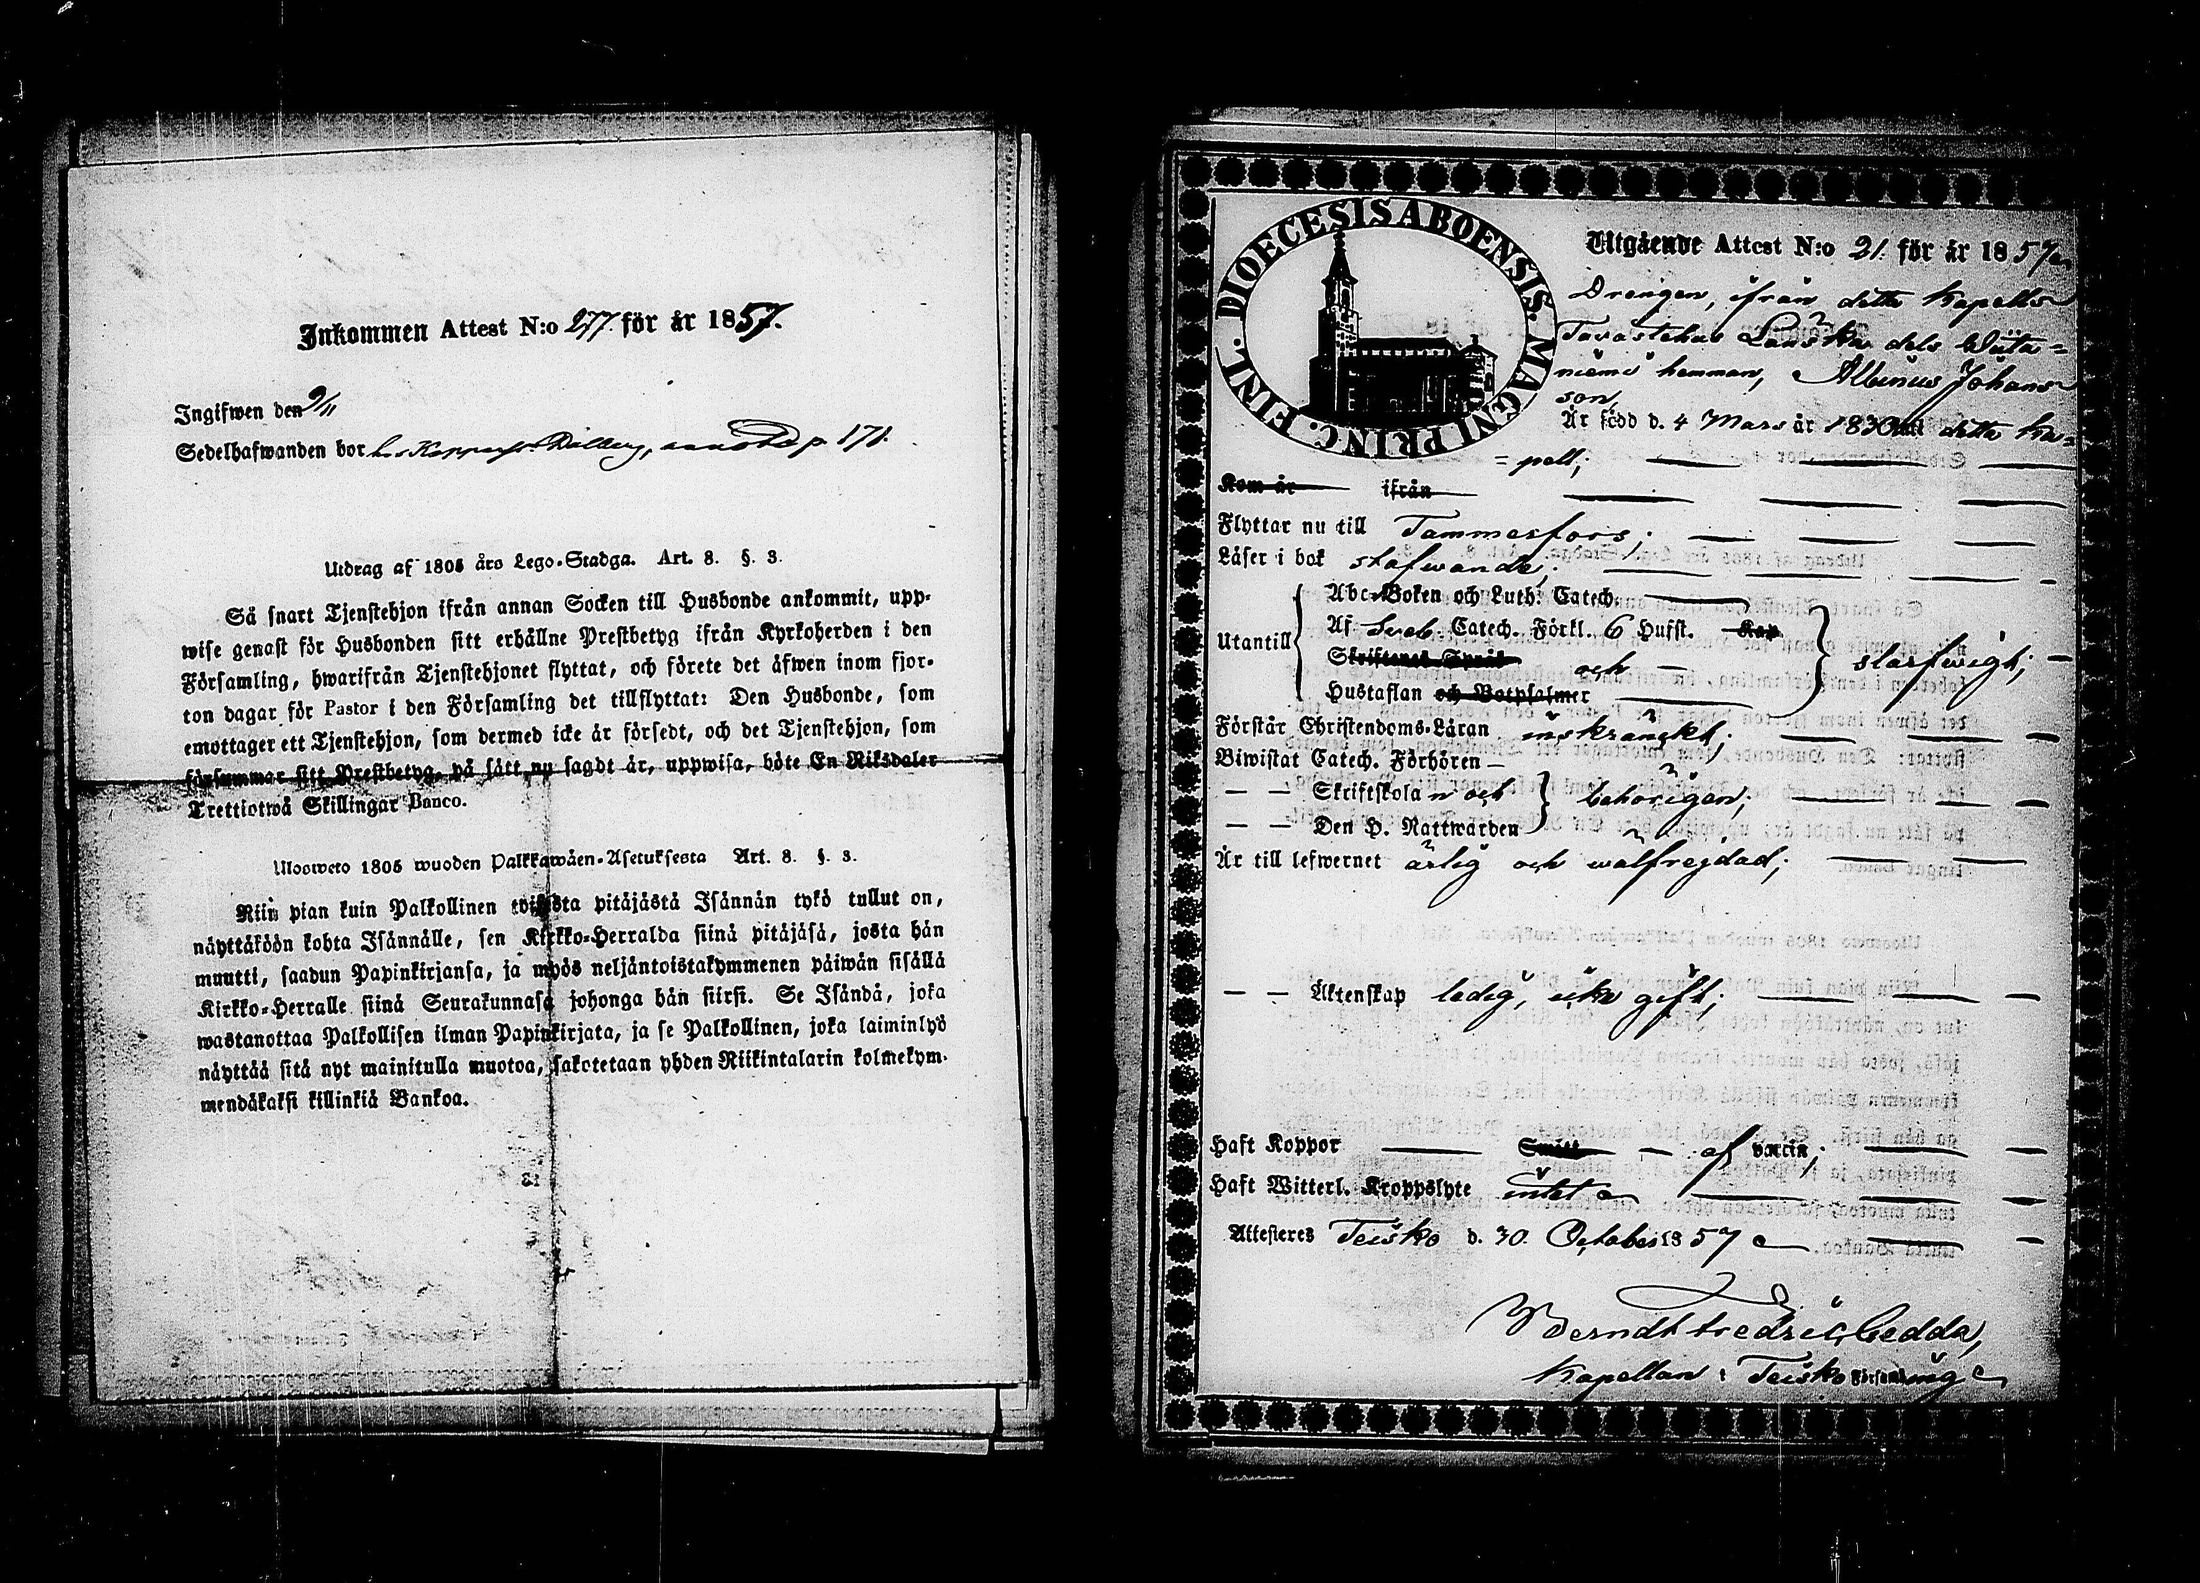 Inkommen Attest N:o 277. för år 1857.
Ingifwen den 9/11
Sedelhafwanden bor hos Kopparsl. Dalberg, p. 171.
Utdrag af 1805 års Lego-Stadga. Art. 8. §. 3.
Så snart Tjenstehjon ifrån annan Socken till Husbonde ankommit, upp-
wise genast för Husbonden sitt erhållne Prestbetyg ifrån Kyrkoherden i den
Församling, hwarifrån Tjenstehjonet flyttat, och förete det äfwen inom fjor-
ton dagar för Pastor i den Församling det tillflyttat: Den Husbonde, som
emottager ett Tjenstehjon, som dermed icke är försedt, och det Tjenstehjon, som
försummar sitt Prestbetyg, på sätt nu sagdt är, uppwisa, böte En Riksdaler
Trettiotwå Skillingar Banco.
Ulosweto 1805 wuoden Palkkawäen-Asetuksesta Art. 8. §. 3.
Niin pian kuin Palkollinen toisesta pitäjästä Isännän tykö tullut on,
näyttäköön kohta Isännälle, sen Kirkko-Herralda siinä pitäjäsä, josta hän
muutti, saadun Papinkirjansa, ja myös neljäntoistakymmenen päiwän sisällä
Kirkko-Herralle siinä Seurakunnasa johonga hän siirsi. Se Isändä, joka
wastanottaa Palkollisen ilman Papinkirjata, ja se Palkollinen, joka laiminlyö
näyttää sitä nyt mainitulla muotoa, sakotetaan yhden Riikintalarin kolmekym-
mendäkaksi killinkiä Bankoa.
DIOECESIS ABOENSIS. MAGNI PRINC. FINL.
Utgående Attest N:o 21. för år 1857
Drengen, ifrån detta Kapells
Tavastehus Länska dels Wiita=
niemi hemman, Albinus Johans
son,
Är född d. 4 Mars år 1830 i detta Ka=
=pell;
Kom år ifrån
Flyttar nu till Tammerfors;
Läser i bok stafwande;
Abc-Boken och Luth. Catech.
Utantill Af Sveb. Catech. Förkl. 6 Hufst. Kap. slarfwigt;
Skriftenes Språk och
Hustaflan och Botpsalmer
Förstår Christendoms-Läran inskränckt;
Biwistat Catech. Förhören
— — Skriftskolan och behörigen;
— — Den H. Nattwarden
Är till lefwernet ärlig och wälfregdad;
— — Äktenskap ledig, icke gift;
Haft Koppor Smitt af vaccin;
Haft Witterl. Kroppslyte intet
Attesteres Teisko d. 30. October 1857
Berndt Fredric Gedda,
Kapellan i Teisko Församling